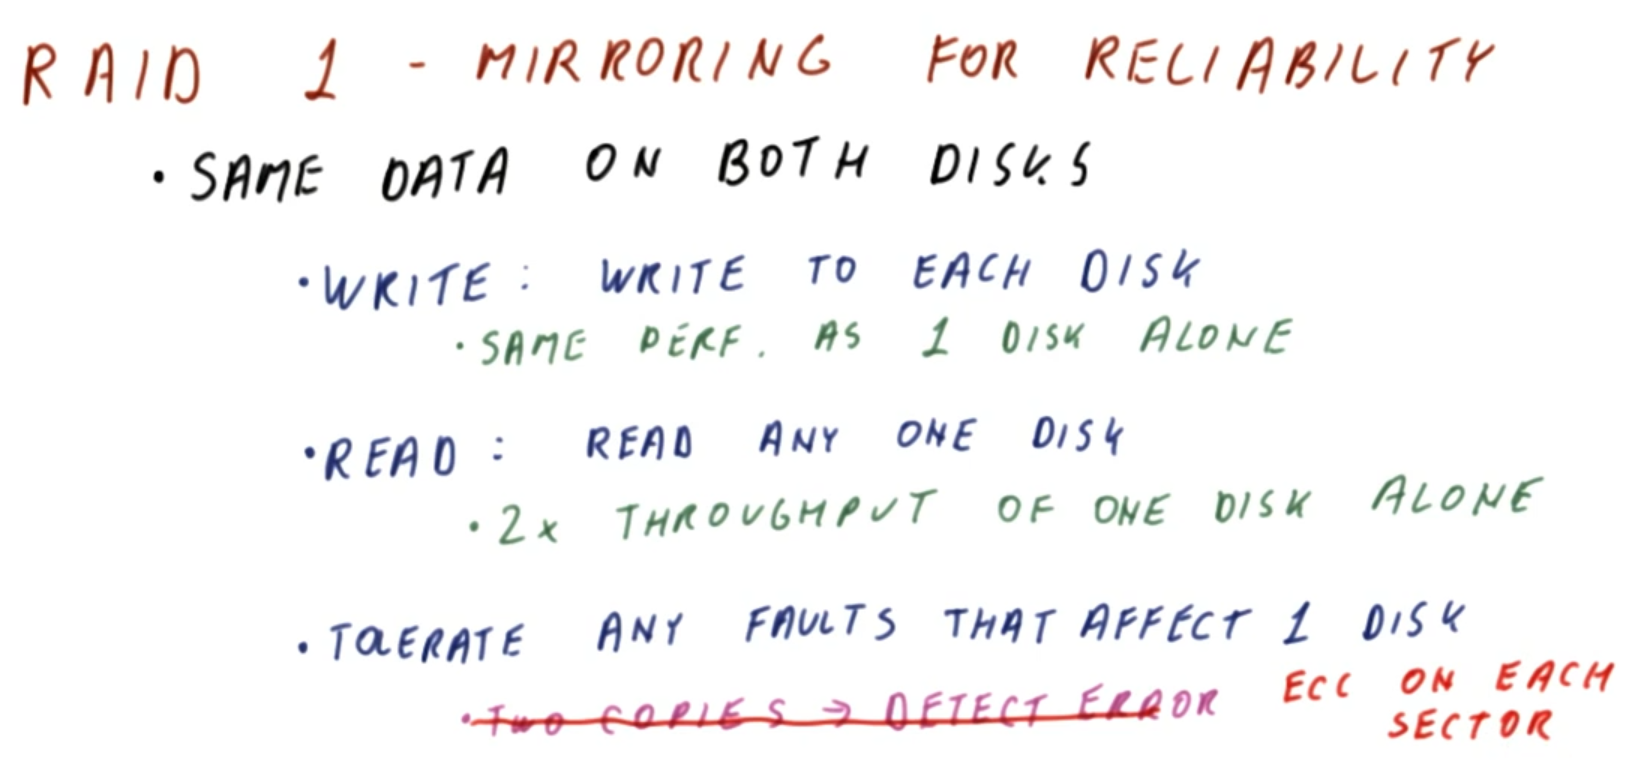 RAID 1 - MIRRORING FOR RELIABILITY
• SAME DATA ON BOTH DISKS
• WRITE: WRITE TO EACH DISK
• SAME PERF. AS 1 DISK ALONE
• READ: READ ANY ONE DISK
• 2x THROUGHPUT OF ONE DISK ALONE
• TOLERATE ANY FAULTS THAT AFFECT 1 DISK
• TWO COPIES → DETECT ERROR
ECC ON EACH
SECTOR